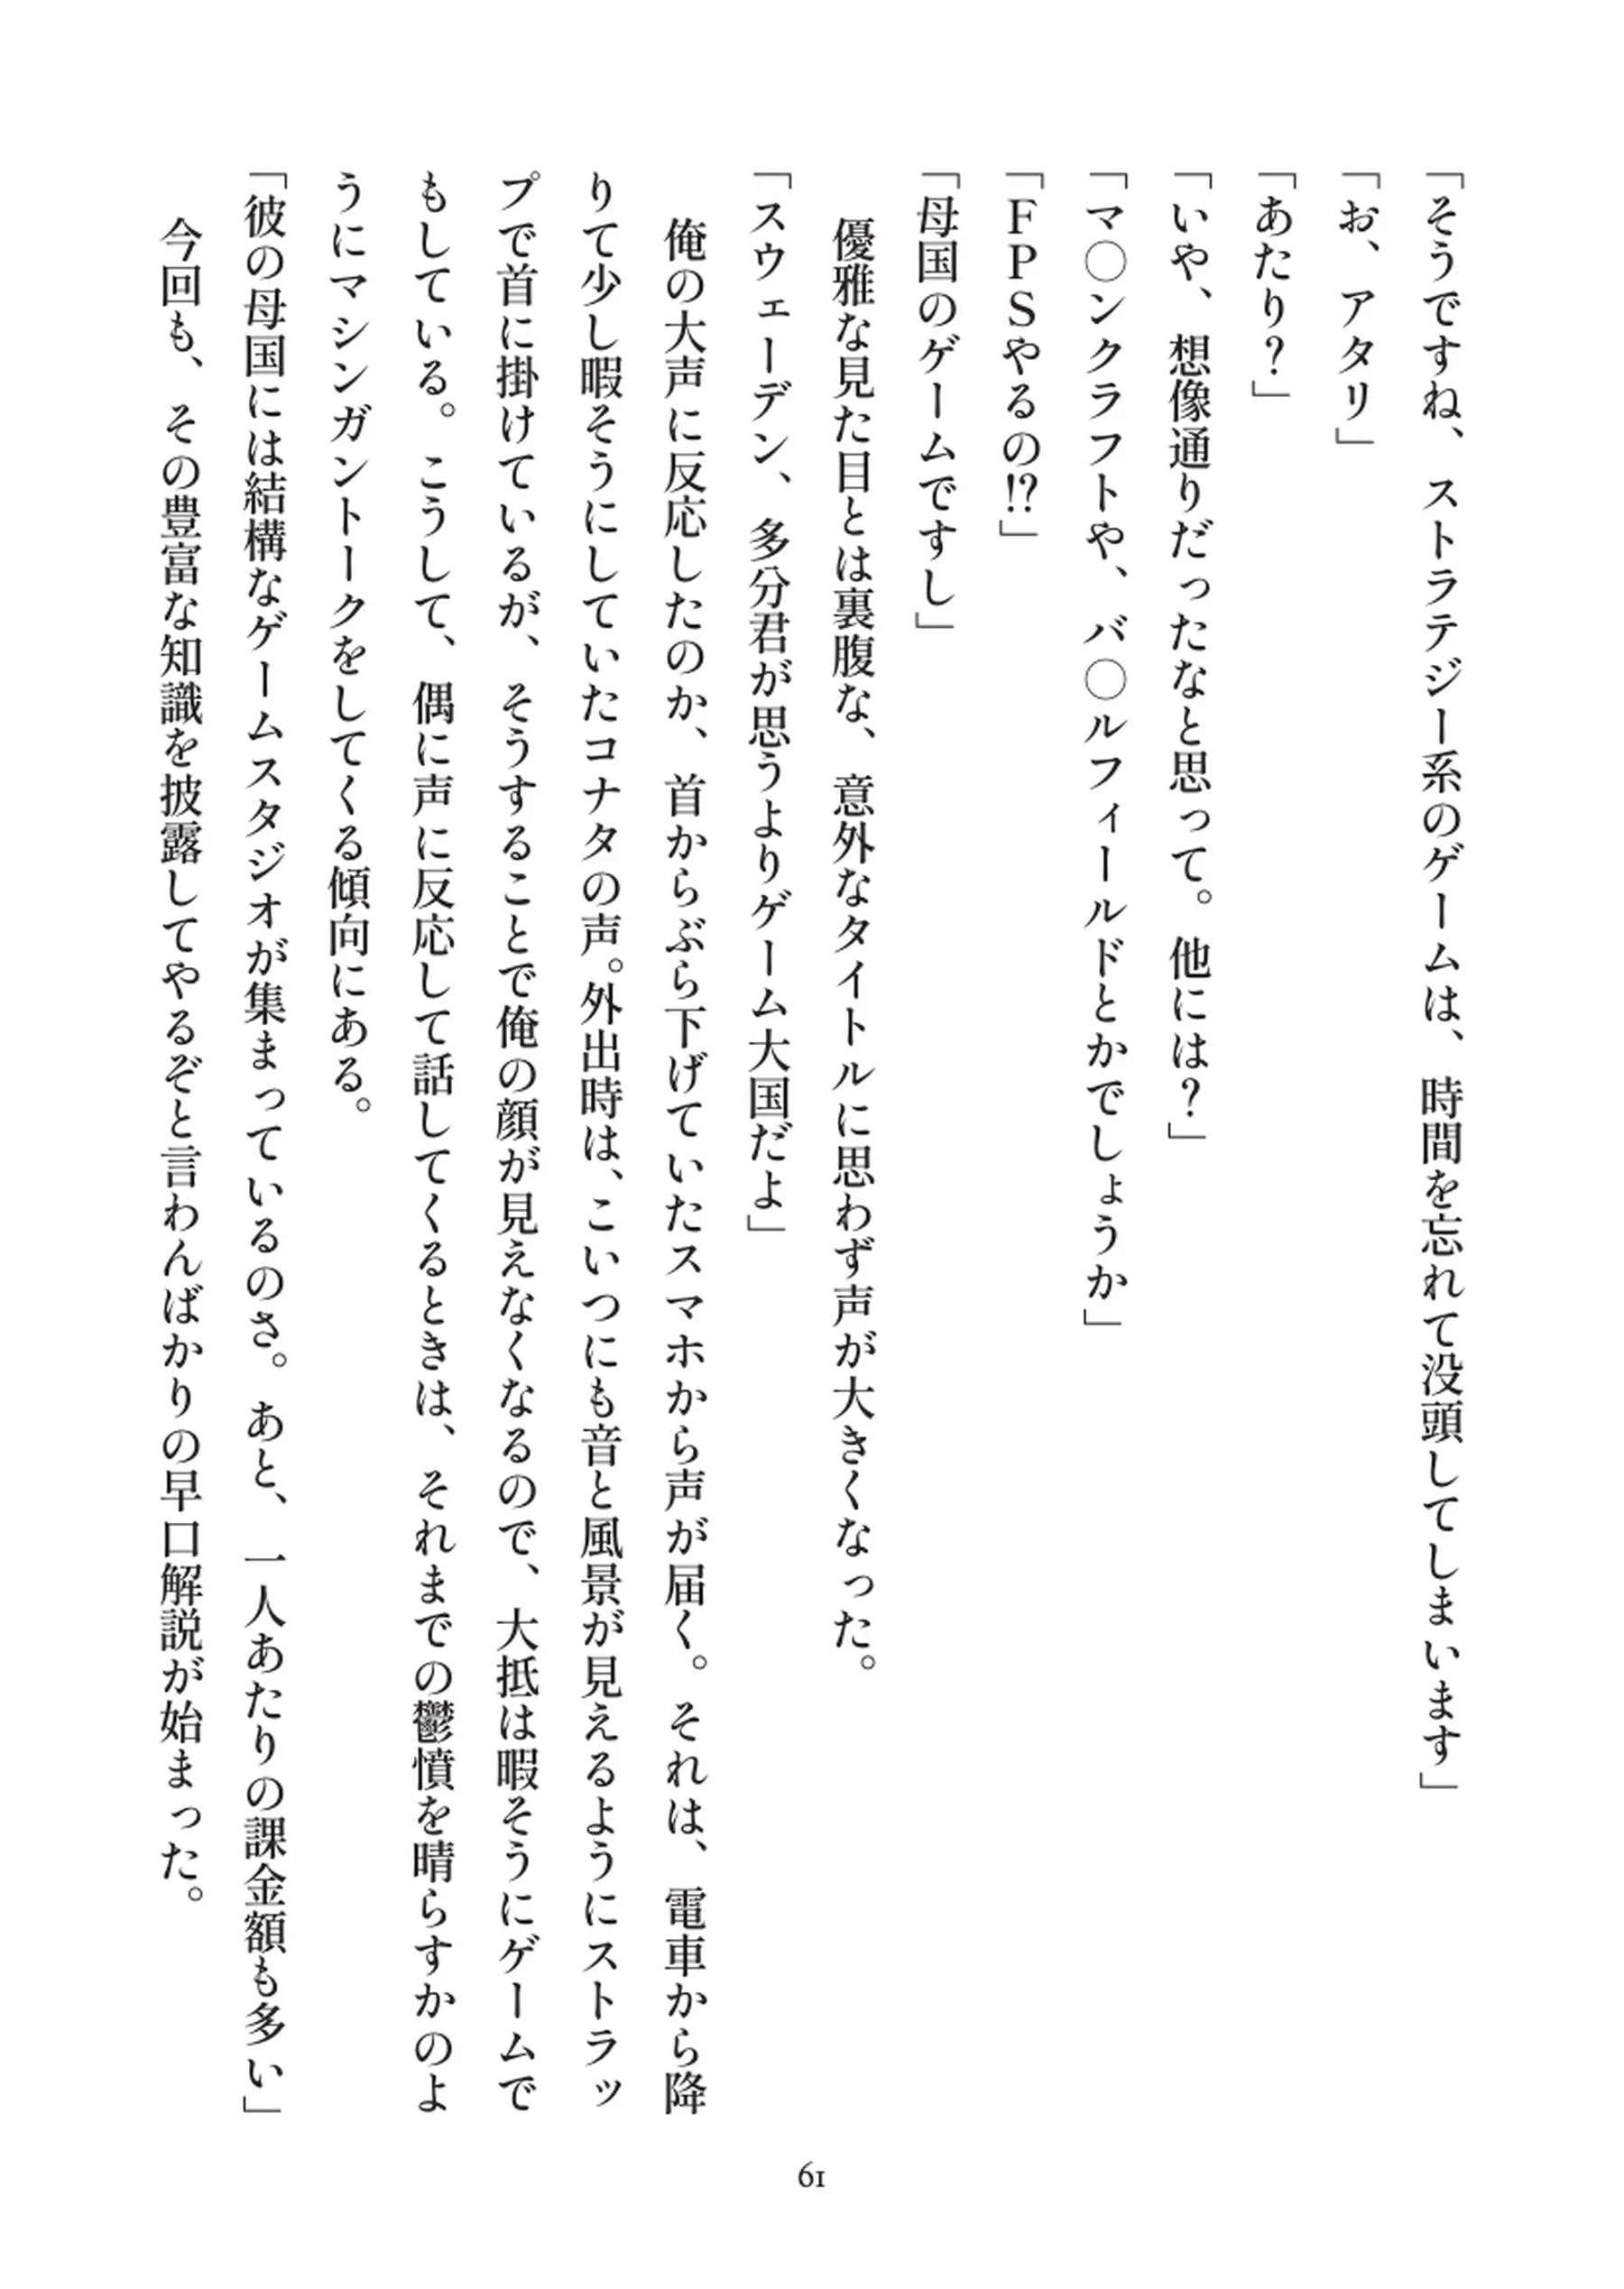 「そうですね、ストラテジー系のゲームは、時間を忘れて没頭してしまいます」
「お、アタリ」
「あたり？」
「いや、想像通りだったなと思って。他には？」
「マ〇ンクラフトや、バ〇ルフィールドとかでしょうか」
「ＦＰＳやるの⁉」
「母国のゲームですし」
　優雅な見た目とは裏腹な、意外なタイトルに思わず声が大きくなった。
「スウェーデン、多分君が思うよりゲーム大国だよ」
　俺の大声に反応したのか、首からぶら下げていたスマホから声が届く。それは、電車から降
りて少し暇そうにしていたコナタの声。外出時は、こいつにも音と風景が見えるようにストラッ
プで首に掛けているが、そうすることで俺の顔が見えなくなるので、大抵は暇そうにゲームで
もしている。こうして、偶に声に反応して話してくるときは、それまでの鬱憤を晴らすかのよ
うにマシンガントークをしてくる傾向にある。
「彼の母国には結構なゲームスタジオが集まっているのさ。あと、一人あたりの課金額も多い」
　今回も、その豊富な知識を披露してやるぞと言わんばかりの早口解説が始まった。
61